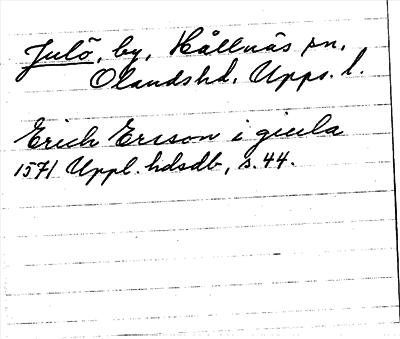 Julö, by, Hållnäs sn,
Olandshd, Upps. l.
Erich Ersson i giula
1571 Uppl. hdsdb, s. 44.